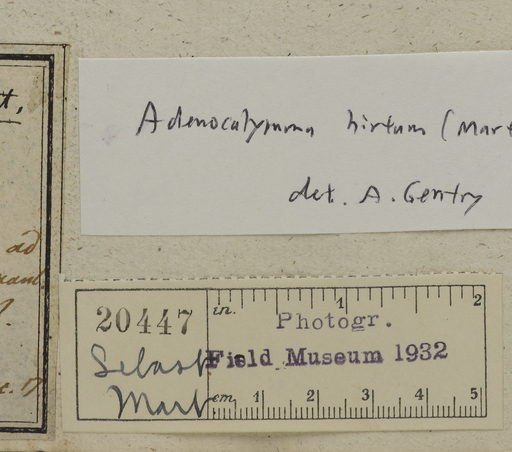 t,
Adenocalymma hirtum (Mart
det. A. Gentry
ad
in. 1 2
20447 Photogr.
Field Museum 1932
Mart
cm 1 2 3 4 5
c. 17